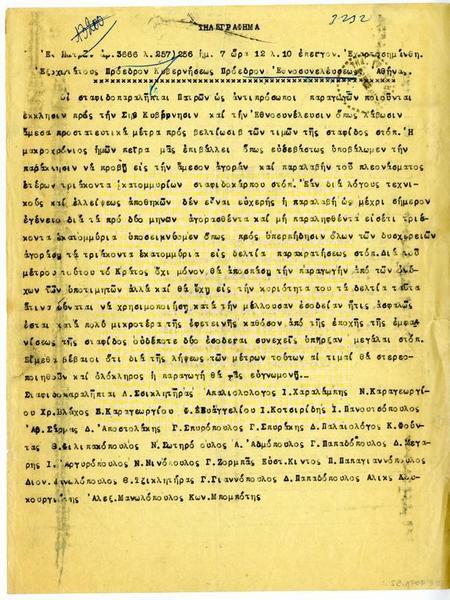 3232
ΤΗΛΕΓΡΑΦΗΜΑ
Ἐκ Πατρῶν ἀρ.3666 λ.257/256 ἡμ. 7 ὥρα 12 λ.10 ἐπεῖγον.
Ἐξοχωτάτους Πρόεδρον Κυβερνήσεως Πρόεδρον Ἐθνοσυνελεύσεως Ἀθήνα.
Οἱ σταφιδοπαραλῆπται Πατρῶν ὡς ἀντιπρόσωποι παραγωγῶν ποιοῦνται
ἔκκλησιν πρός τήν Σήν Κυβέρνησιν καί τήν Ἐθνοσυνέλευσιν ὅπως λάβωσιν
ἄμεσα προστατευτικά μέτρα πρός βελτίωσιν τῶν τιμῶν τῆς σταφίδος στόπ. Ἡ
μακροχρόνιος ἡμῶν πεῖρα μᾶς ἐπιβάλλει ὅπως εὐσεβάστως ὑποβάλωμεν τήν
παράκλησιν νά προβῇ εἰς τήν ἄμεσον ἀγοράν καί παραλαβήν τοῦ πλεονάσματος
ἑτέρων τριάκοντα ἑκατομμυρίων σταφιδοκάρπου στόπ. Ἐάν διά λόγους τεχνι-
κούς καί ἐλλείψεως ἀποθηκῶν δέν εἶναι εὐχερής ἡ παραλαβή ὡς μέχρι σήμερον
ἐγένετο διά τά πρό δύο μηνῶν ἀγορασθέντα καί μή παραληφθέντα εἰσέτι τριά-
κοντα ἑκατομμύρια ὑποδεικνύομεν ὅπως πρός ὑπερπήδησιν ὅλων τῶν δυσχερειῶν
ἀγοράσῃ τά τριάκοντα ἑκατομμύρια εἰς δελτία παρακρατήσεως στόπ. Διά τοῦ
μέτρου τούτου τό Κράτος ὄχι μόνον θά ἀποσπάσῃ τήν παραγωγήν ἀπό τῶν ὀνύ-
χων τῶν ὑποτιμητῶν ἀλλά καί θά ἔχῃ εἰς τήν κυριότητά του τά δελτία ταῦτα
ἅτινα δύναται νά χρησιμοποιήσῃ κατά τήν μέλλουσαν ἐσοδείαν ἥτις ἀσφαλῶς
ἔσται κατά πολύ μικροτέρα τῆς ἐφετεινῆς καθόσον ἀπό τῆς ἐποχῆς τῆς ἐμφα-
νίσεως τῆς σταφίδος οὐδέποτε δύο ἐσοδεῖαι συνεχεῖς ὑπῆρξαν μεγάλαι στόπ.
Εἴμεθα βέβαιοι ὅτι διά τῆς λήψεως τῶν μέτρων τούτων αἱ τιμαί θά στερεο-
ποιηθοῦν καί ὁλόκληρος ἡ παραγωγή θά μᾶς εὐγνωμονῇ...
Σταφιδοπαραλῆπται Λ.Σσικλητήρας Ἀπαλιολόγος Ι.Χαραλάμπης Ν.Καραγεωργί-
ου Χρ.Βλάχος Β.Καραγεωργίου Φ.Εὐαγγελίου Ι.Κοτσιρίδης Ι.Πανουτσόπουλος
Ἀρ.Σῦρμας Δ.Ἀποστολάκης Γ.Σπυρόπουλος Γ.Σπυράκης Δ.Παλαιολόγος Κ.Φούν-
τας Θ.Φιλιπακόπουλος Ν.Σωτηρόπουλος Ἀ.Ἀδμόπουλος Γ.Παπαδόπουλος Δ.Μεγά-
ρης Ι.Ἀργυρόπουλος Ν.Νινόπουλος Γ.Ζορμπᾶς Εὐστ.Κίντος Π.Παπαγιαννόπουλος
Διον. Θ.Τζικλητήρας Γ.Γιαννόπουλος Δ.Παπαδόπουλος Ἀλικ.
Ἀλεξ.Μανωλόπουλος Κων.Μπομπότης